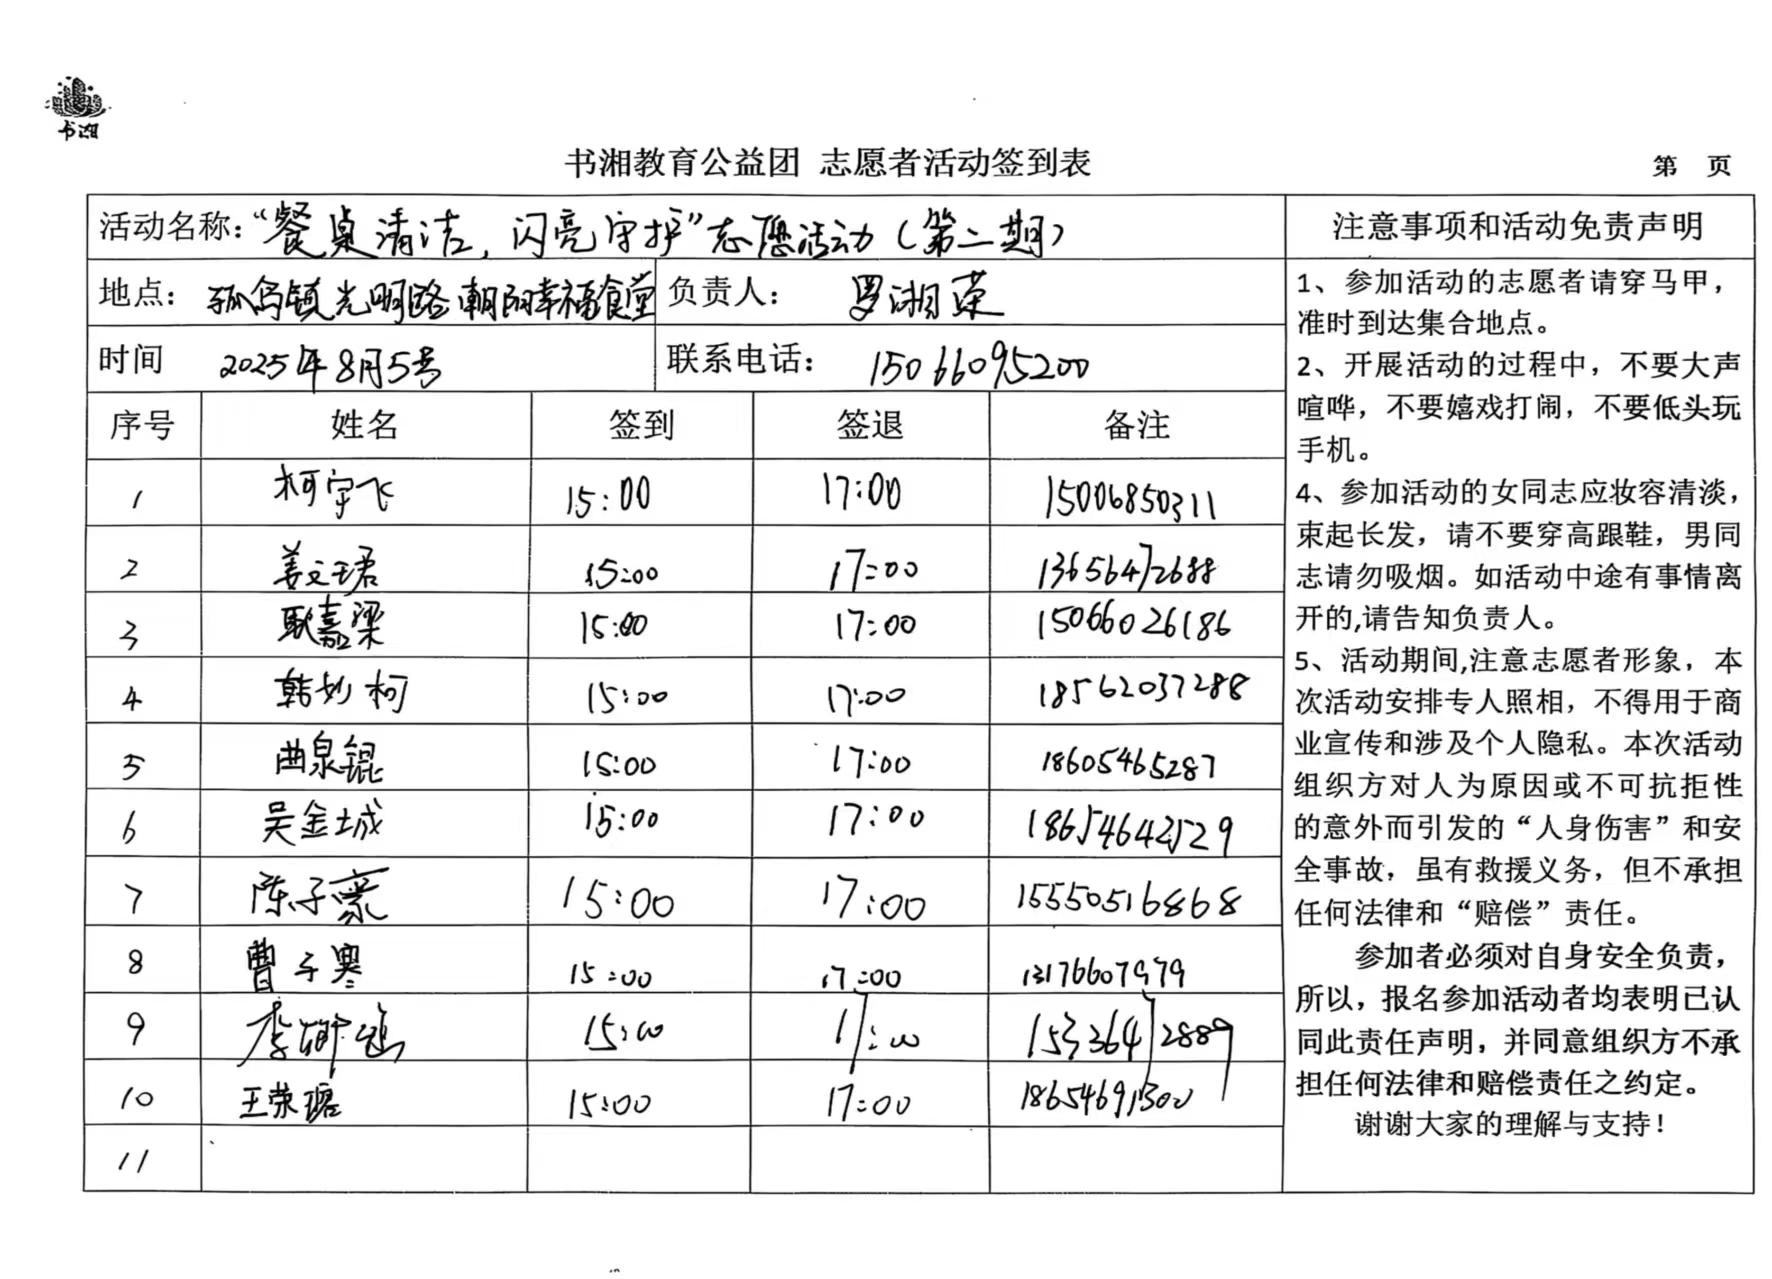 书湘
书湘教育公益团 志愿者活动签到表
第 页
活动名称：“餐桌清洁，闪亮守护”志愿活动（第二期）
地点：孤岛镇光明路朝阳幸福食堂 负责人：罗湘荣
时间 2025年8月5号 联系电话：15066095200
序号 姓名 签到 签退 备注
1 柯宇飞 15:00 17:00 15006850311
2 姜文珺 15:00 17:00 13656472688
3 耿嘉梁 15:00 17:00 15066026186
4 韩妙柯 15:00 17:00 18562037288
5 曲泉锟 15:00 17:00 18605465287
6 吴金城 15:00 17:00 18654642529
7 陈子豪 15:00 17:00 15550516868
8 曹子寒 15:00 17:00 13176607979
9 李 15:00 17:00 15336472889
10 王荣瑢 15:00 17:00 18654691300
11
注意事项和活动免责声明
1、参加活动的志愿者请穿马甲，
准时到达集合地点。
2、开展活动的过程中，不要大声
喧哗，不要嬉戏打闹，不要低头玩
手机。
4、参加活动的女同志应妆容清淡，
束起长发，请不要穿高跟鞋，男同
志请勿吸烟。如活动中途有事情离
开的,请告知负责人。
5、活动期间,注意志愿者形象，本
次活动安排专人照相，不得用于商
业宣传和涉及个人隐私。本次活动
组织方对人为原因或不可抗拒性
的意外而引发的“人身伤害”和安
全事故，虽有救援义务，但不承担
任何法律和“赔偿”责任。
参加者必须对自身安全负责，
所以，报名参加活动者均表明已认
同此责任声明，并同意组织方不承
担任何法律和赔偿责任之约定。
谢谢大家的理解与支持！